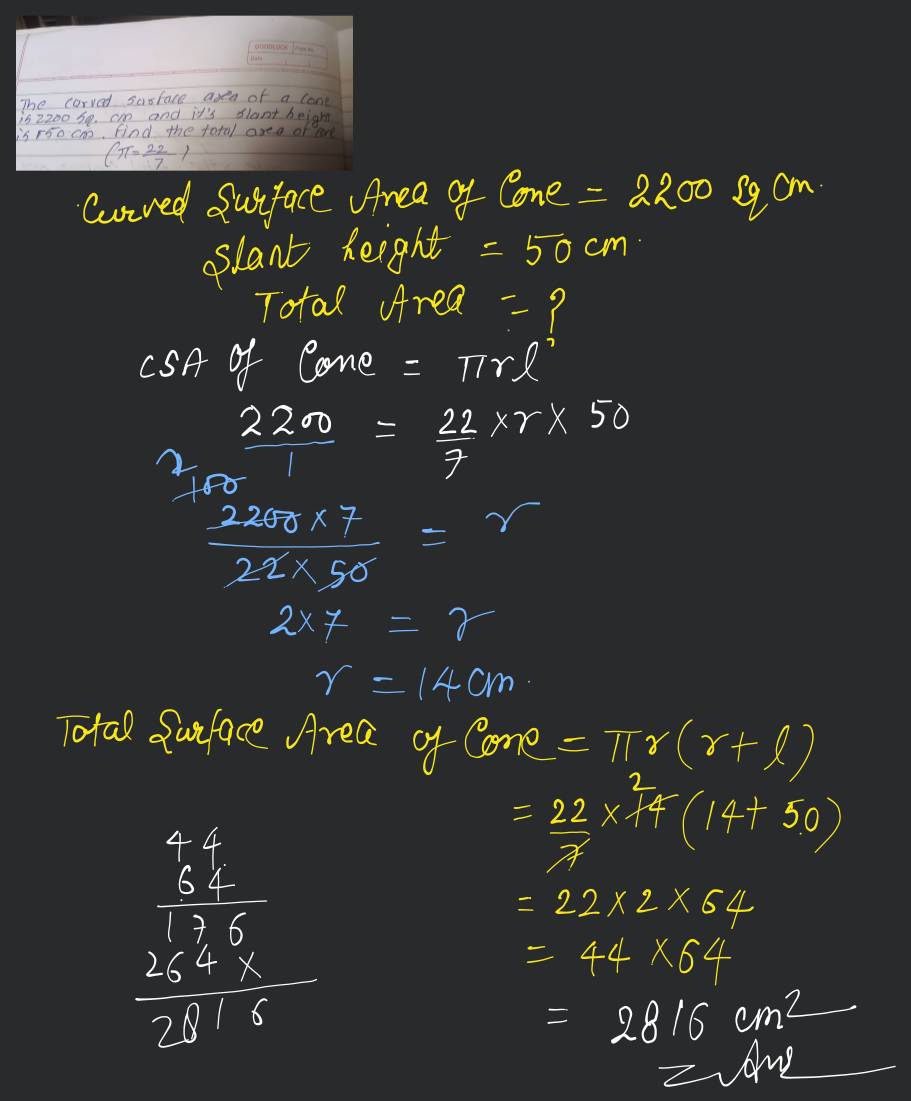 GOODLUCK Page No.
Date
The curved sarface area of a cone
is 2200 sq. cm and it's slant height
is 50 cm. find the total area of cone
(π = 22/7)
Curved Surface Area of Cone = 2200 Sq Cm.
Slant height = 50 cm.
Total Area = ?
CSA of Cone = πrl
2200/1 = 22/7 × r × 50
2
100
2200 × 7 / 22 × 50 = r
2×7 = r
r = 14 cm.
Total Surface Area of Cone = πr(r+l)
= 22/7 × 14 2 (14+50)
= 22×2×64
= 44×64
= 2816 cm²
Ans
44
64
176
264×
2816